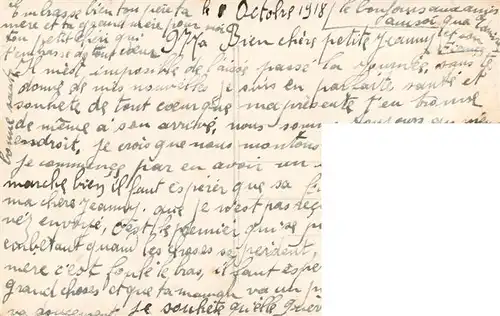 Embrasse bien ton père ta
mère et ta grand mère pour moi
ton petit qui
t'embrasse de tout cœur
le 1 Octobre 1918
le bonjour aux amis
Ma Bien chère petite Jeanny
Il m'est imposible de laisse passe la journée, sans te
donne de mes nouvelles je suis en parfaite santé et
souhete de tout cœur que ma présente t'en trouve
de même à son arrivé, nous som
endroit, je crois que nous montons
je commence par en avoir un
marche bien il faut espérer que sa
ma chère Jeanny, que je n'est pas reç
nez envoyé, c'est le premier qui se p
embêtant quand les choses se perdent,
mère c'est foulé le bas, il faut espe
grand choses et que ta maman va un p
va doucement je souhete qu'elle guér
bonne santé